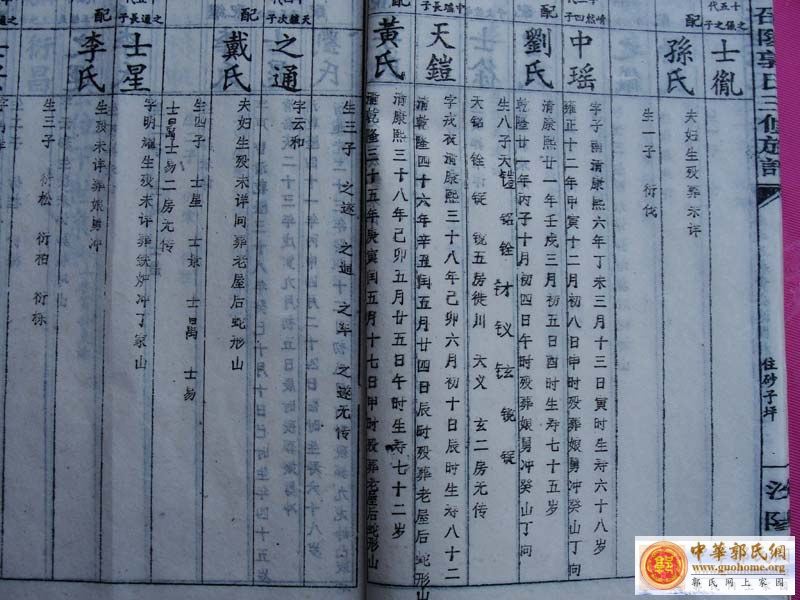 召陵郭氏三修族譜
住砂子坪
汾陽
士胤
夫妇生殁葬未详
配
孫氏
生一子 衍伐
中瑶
字子南清康熙六年丁未三月十三日寅时生寿六十八岁
雍正十二年甲寅十二月初八日申时殁葬娘舅冲癸山丁向
配
劉氏
清康熙廿一年壬戌三月初五日酉时生寿七十五岁
乾隆廿一年丙子十月初四日午时殁葬娘舅冲癸山丁向
生八子天鎧 铭 铨 材 钗 铉 锐 锭
天铭 铨 锭 锐五房徙川 天义 玄二房无传
中瑶长子
天鎧
字戎夜清康熙三十八年己卯六月初十日辰时生寿八十二
清乾隆四十六年辛丑闰五月廿四日辰时殁葬老屋后蛇形山
配
黄氏
清康熙三十八年己卯五月廿五日午时生寿七十二岁
清乾隆三十五年庚寅闰五月十七日申时殁葬老屋后蛇形山
生三子 之逐 之通 之年 之逐无传
天鎧次子
之通
字云和
夫妇生殁未详同葬老屋后蛇形山
配
戴氏
生四子 士星 士景 士昌 士易
士昌士易二房无传
之通長子
士星
字明耀生殁未详葬铁炉冲丁家山
配
李氏
生殁未详葬娘舅冲
生三子 衍松 衍柏 衍栋
中華郭氏網
www.guohome.org
郭氏网上家园